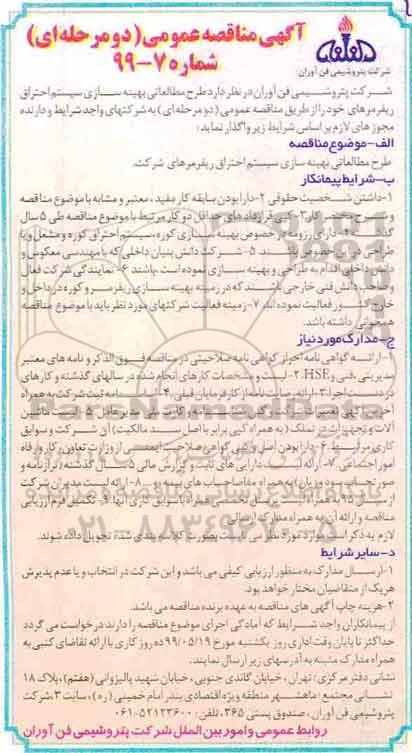 آگهی مناقصه عمومی (دو مرحله ای)
شماره ۷-۹۹
شرکت پتروشیمی فن آوران
شرکت پتروشیمی فن آوران در نظر دارد طرح مطالعاتی بهینه سازی سیستم احتراق
ریفرمرهای خود را از طریق مناقصه عمومی (دو مرحله ای) به شرکتهای واجد شرایط و دارنده
مجوزهای لازم بر اساس شرایط زیر واگذار نماید:
الف-موضوع مناقصه
طرح مطالعاتی بهینه سازی سیستم احتراق ریفرمرهای شرکت.
ب-شرایط پیمانکار
۱-داشتن شخصیت حقوقی ۲-دارا بودن سابقه کار مفید، معتبر و مشابه با موضوع مناقصه
و شرح مختصر کار ۳-کپی قراردادهای حداقل دو کار مرتبط با موضوع مناقصه طی ۵ سال
دارای رزومه در خصوص بهینه سازی کوره، سیستم احتراق کوره و مشعل و یا
طراحی در این خصوص باشند ۵-شرکت دانش بنیان داخلی که با مهندسی معکوس و
اقدام به طراحی و بهینه سازی نموده است باشند ۶-نمایندگی شرکت فعال
و صاحب دانش فنی خارجی باشند که در زمینه بهینه سازی ریفرمر و کوره در داخل و
خارج کشور فعالیت نموده اند ۷-زمینه فعالیت شرکتهای مورد نظر باید با موضوع مناقصه
همخوانی داشته باشد.
ج-مدارک مورد نیاز
۱-ارائه گواهی نامه احراز گواهی نامه صلاحیتی در مناقصه فوق الذکر و نامه های معتبر
مدیریتی، فنی و HSE ۲-لیست و مشخصات کارهای انجام شده در سالهای گذشته و کارهای
در دست اجرا ۳-ارائه رضایت نامه از کارفرمایان قبلی
آلات و تجهیزات در تملک (به همراه کپی برابر با اصل سند مالکیت) آن شرکت و سوابق
کاری مرتبط ۶-دارا بودن اصل و کپی گواهی صلاحیت ایمنی از وزارت تعاون، کار و رفاه
امور اجتماعی ۷-ارائه لیست دارایی های ثابت و گزارش مالی ۵ سال گذشته (ترازنامه و
صورتحساب سود و زیان) به همراه مفاصا حساب های بیمه ۸-ارائه لیست مدیران شرکت
مناقصه و ارائه آن به همراه مدارک ارسالی
لازم به ذکر است موارد مورد نظر می بایست بصورت کلاسه بندی شده تحویل داده شوند.
د-سایر شرایط
۱-ارسال مدارک به منظور ارزیابی کیفی می باشد و این شرکت در انتخاب و یا عدم پذیرش
هریک از متقاضیان مختار خواهد بود.
۲-هزینه چاپ آگهی های مناقصه به عهده برنده مناقصه می باشد.
از پیمانکاران واجد شرایط که آمادگی اجرای موضوع مناقصه را دارند درخواست می گردد
حداکثر تا پایان وقت اداری روز یکشنبه مورخ ۹۹/۰۵/۱۹ ده روز کاری با ارائه تقاضای کتبی به
همراه مدارک مثبته به آدرسهای زیر ارسال نمایند.
نشانی دفتر مرکزی: تهران، خیابان گاندی جنوبی، خیابان شهید پالیزوانی (هفتم)، پلاک ۱۸
نشانی مجتمع: ماهشهر منطقه ویژه اقتصادی بندر امام خمینی (ره)، سایت ۳، شرکت
پتروشیمی فن آوران، صندوق پستی ۳۶۵، تلفن: ۰۶۱-۵۲۱۲۳۶۰۰
روابط عمومی و امور بین الملل شرکت پتروشیمی فن آوران